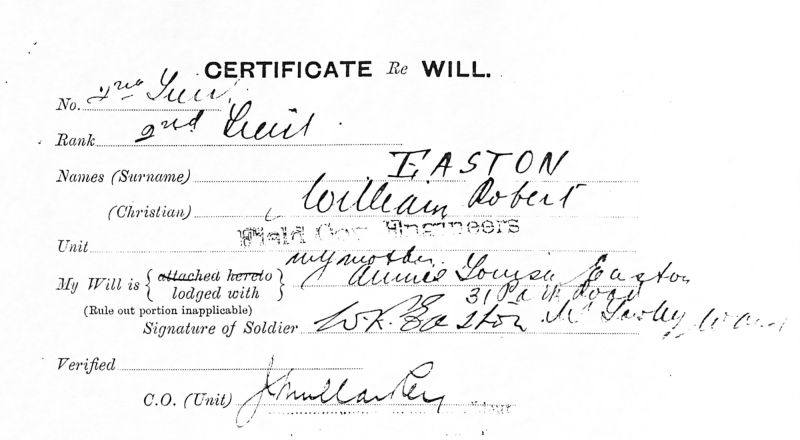 CERTIFICATE Re WILL.
No. 2nd Lieut
Rank 2nd Lieut
Names (Surname) EASTON
(Christian) William Robert
Unit Field Coy Engineers
my mother
My Will is { attached hereto } Annie Louisa Easton
lodged with 31 Park Road
(Rule out portion inapplicable)
Signature of Soldier W.R. Easton Mt Lawley
Verified
C.O. (Unit)